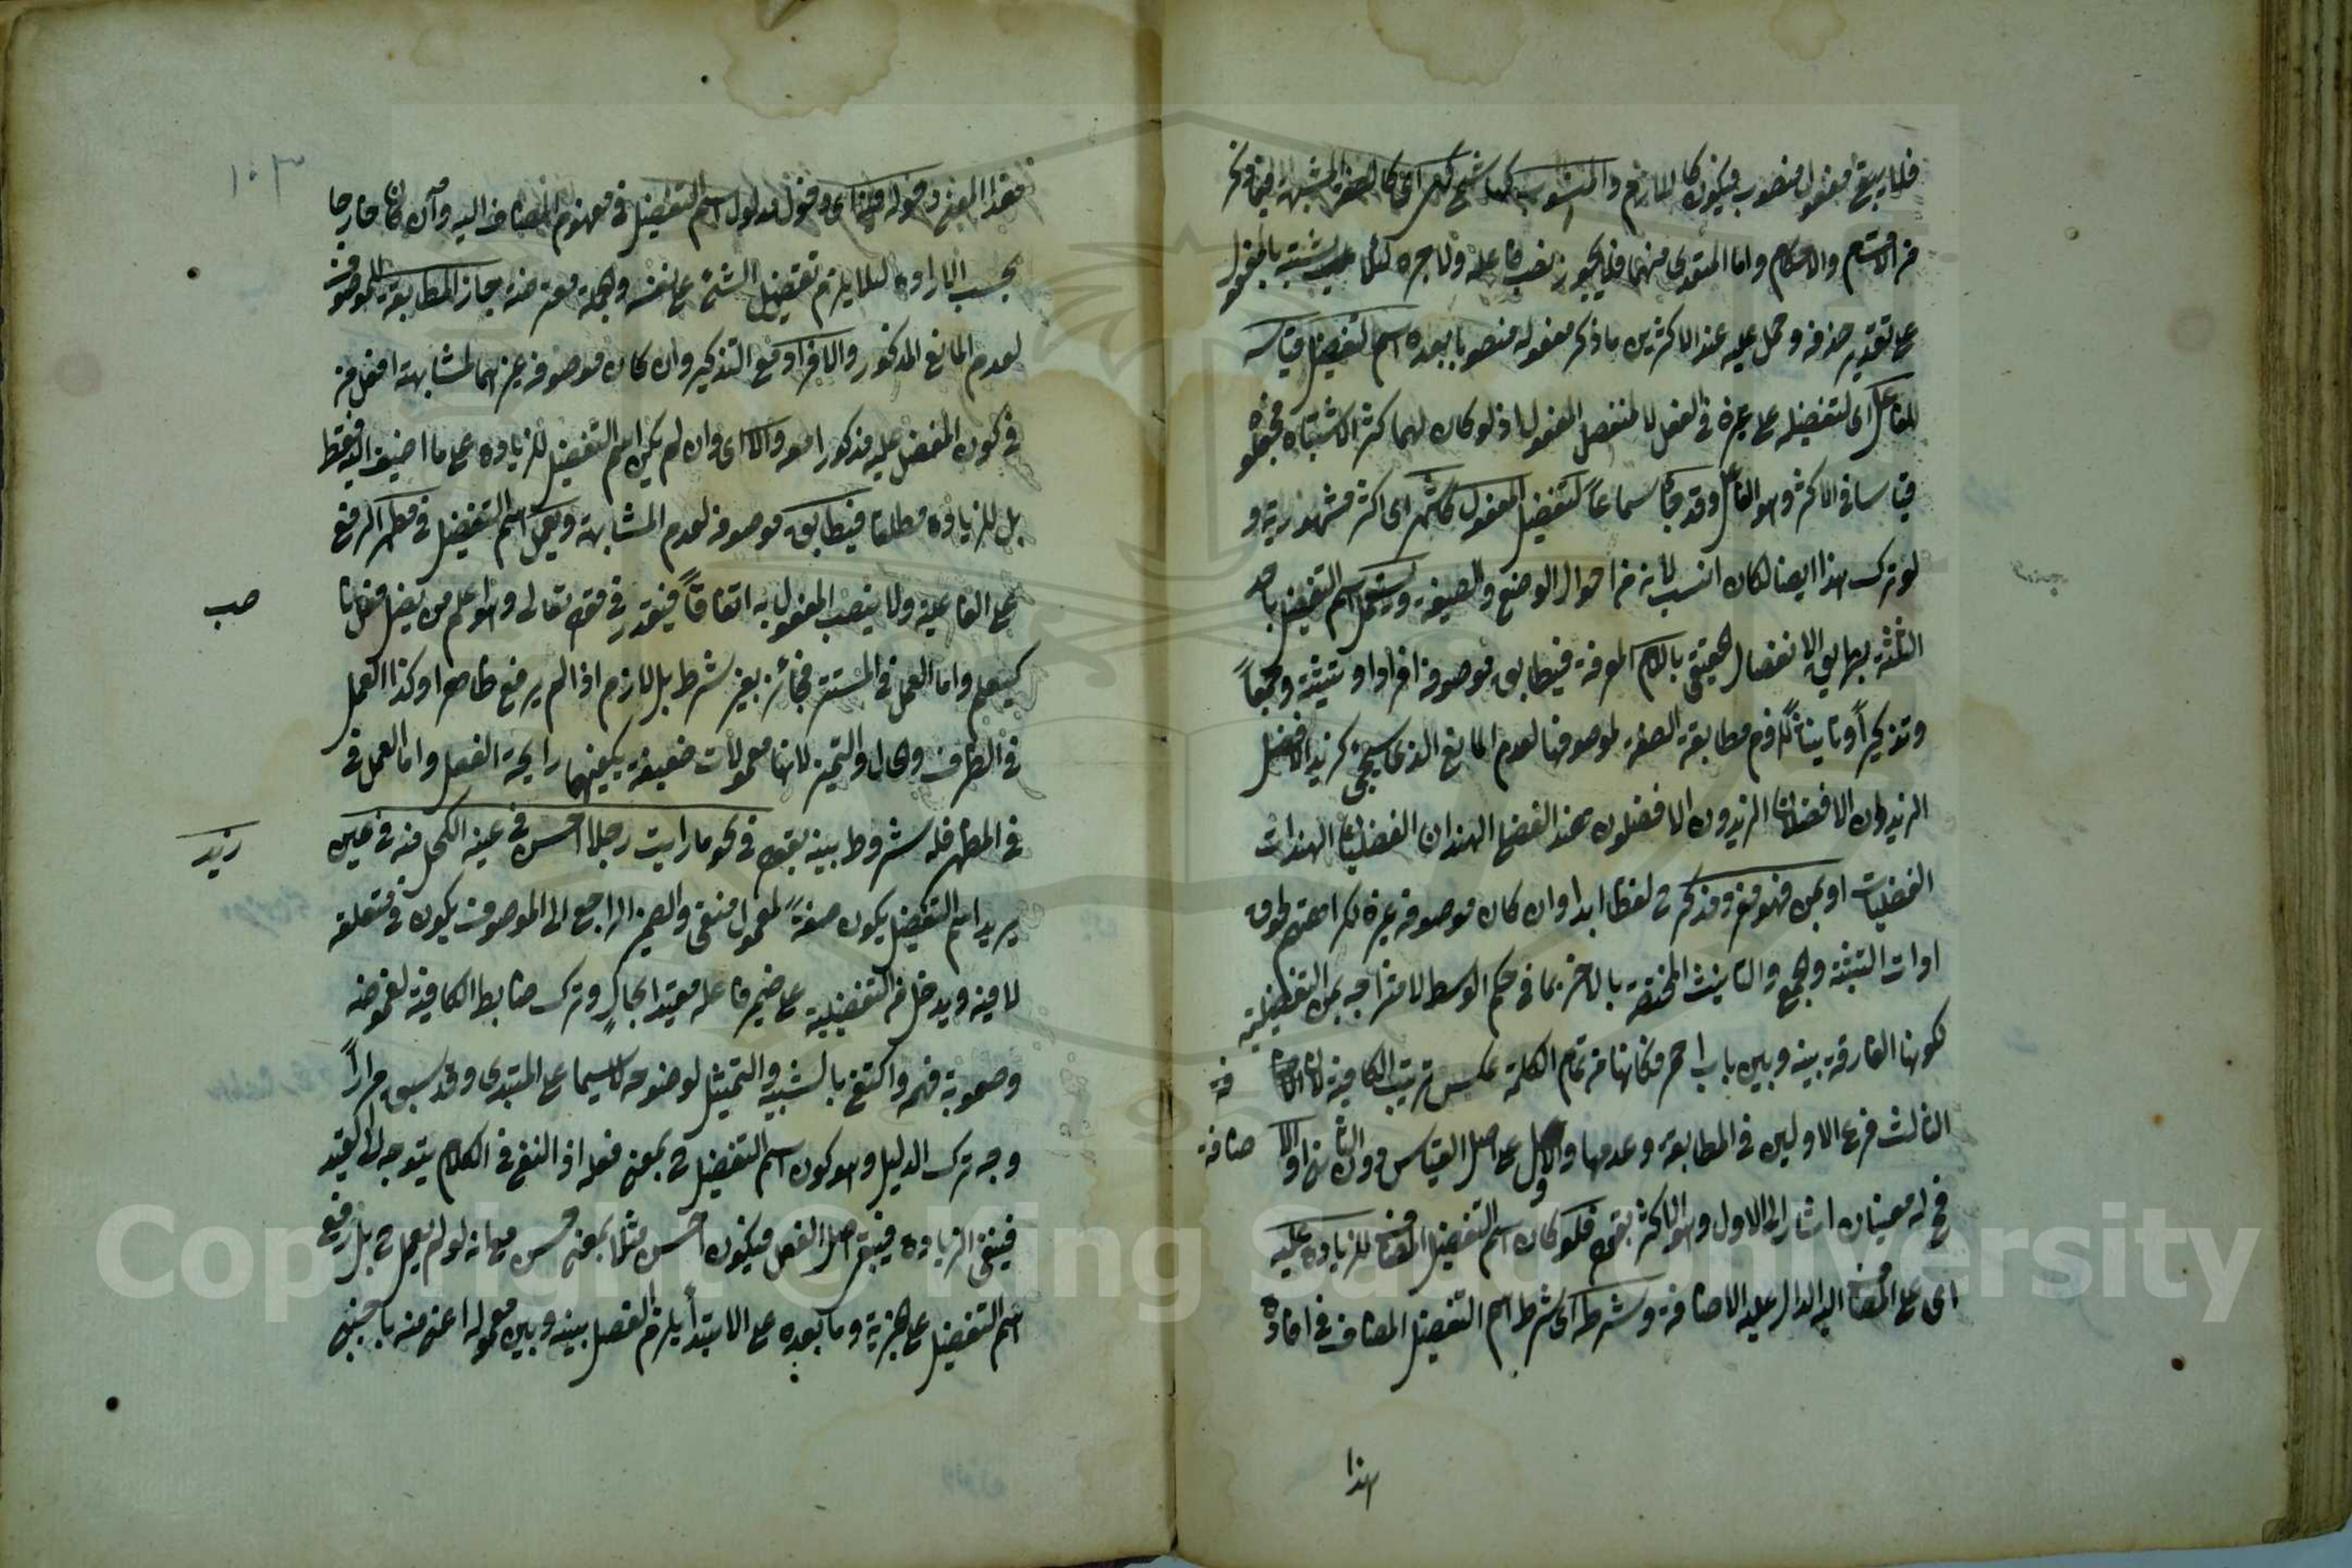 فلا يبقى مفعول منصوب فيكون كاللازم والمنسوب
من الاقسام والاحكام واما المتعدى منهما فلا يجوز نصب فاعله ولا جره لئلا يشتبه بالمفعول
على تقدير حذفه وحمل عليه عند الاكثرين ما ذكر مفعوله منصوبا بعده اسم التفضيل قياسه
للفاعل اى لتفضيله على غيره فى الفعل لا لتفضيل المفعول اذ لو كان لهما كثر الاشتباه فجعلوه
قياسا فى الاكثر وهو الفاعل وقد جاء سماعاً لتفضيل المفعول كاشهر اى اكثر مشهورية و
لو ترك هذا ايضا لكان انسب لانه من احوال الوضع والصيغة ويستعمل اسم التفضيل باحد
الثلثة بالام المعرفة فيطابق موصوفه افرادا وتثنية وجمعاً
وتذكيراً وتأنيثاً للزوم مطابقة الصفة لموصوفها لعدم المانع الذى سيجئ كزيد الافضل
الزيدان الافضلان الزيدون الافضلون هند الفضلى الهندان الفضليان الهندات
الفضليات او بمن فهو مفرد مذكر لفظا ابدا وان كان موصوفه غيره لكراهتهم لحوق
ادات التثنية والجمع والتانيث المختصة بالاخر بما فى حكم الوسط لامتزاجه بمن التفضيلية
لكونها الفارقة بينه وبين باب احمر فكانها من تمام الكلمة عكس ترتيب الكافية لان
الثالث فرع الاولين فى المطابقة وعدمها والاول على اصل القياس دون الثانى او الا
ضافة
فح له معنيان اشار الى الاول وهو الاكثر بقوله فلو كان اسم التفضيل المضاف للزيادة عليه
اى على المضاف اليه الدال عليه الاضافة وشرطه اى شرط اسم التفضيل المضاف فى افادة
هذا
هذا المعنى دخوله فيه اى دخول مدلول اسم التفضيل فى مفهوم المضاف اليه وان كان خارجا
بحسب الارادة لئلا يلزم تفضيل الشئ على نفسه جاز المطابقة للموصوف
لعدم المانع المذكور والافراد مع التذكير وان كان موصوفه غيرهما لمشابهة افعل من
فى كون المفضل عليه مذكورا معه والا اى وان لم يكن اسم التفضيل للزيادة على ما اضيف اليه فقط
بل للزيادة مطلقا فيطابق موصوفه لعدم المشابهة ويعمل اسم التفضيل فى مطلق الرفع
على الفاعلية ولا ينصب المفعول به اتفاقاً فيقدر فى قوله تعالى هو اعلم من يضل فعل
كيعلم واما العمل فى المستتر فجائز بغير شرط بل لازم اذا لم يرفع ظاهرا وكذا العمل
فى الظرف والحال والتميز لانها معمولات ضعيفة يكفيها رايحة الفعل واما العمل فى
فى المظهر فله شروط بينه بقوله فى نحو ما رايت رجلا احسن فى عينه الكحل منه فى عين
زيد
يريد اسم التفضيل يكون صفةً لمعمول منفى والضمير الراجع الى الموصوف يكون فى متعلقه
لا فيه ويدخل من التفضيلية على ضمير فاعله مقيدا بحالٍ وترك ضابط الكافية لغموضه
وصعوبة فهمه واكتفى بالشبيه والتمثيل لوضوحه لا سيما على المبتدى وقد سبق مراراً
وجه ترك الدليل وهو كون اسم التفضيل بمعنى فعله اذ النفى فى الكلام يتوجه الى القيد
فينتفى الزيادة فيبقى اصل الفعل فيكون احسن مثلا بمعنى حسن مع انه لو لم يعمل بل رفع
اسم التفضيل على خبرية وما بعده على الابتداء يلزم الفصل بينه وبين معموله اعنى منه باجنبى